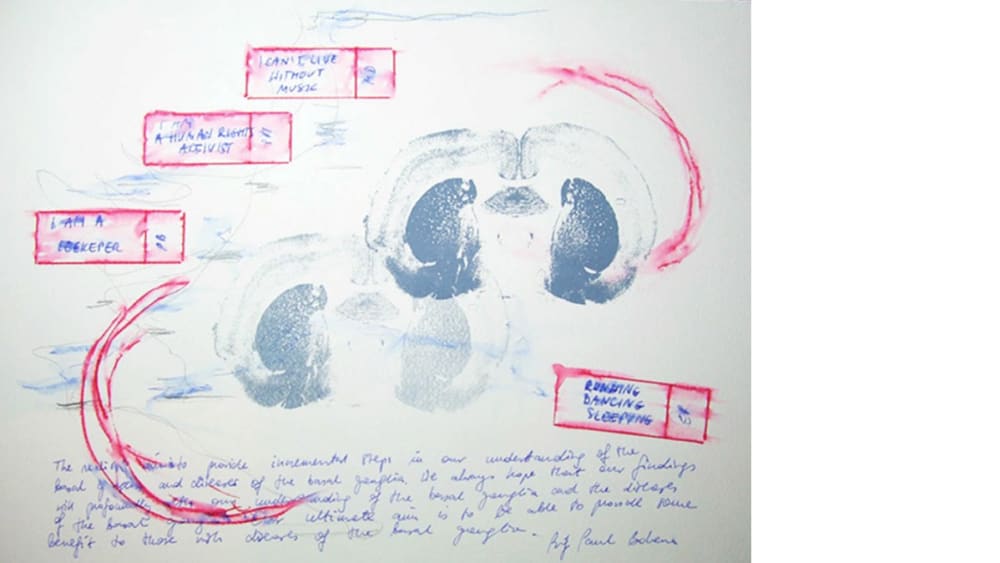 I CAN'T LIVE
WITHOUT
MUSIC
I AM
A HUMAN RIGHTS
ACTIVIST
I AM A
BEEKEPER
RUNNING
DANCING
SLEEPING
The to provide incremental steps in our understanding of the
basal and diseases of the basal ganglia. We always hope that our findings
will profoundly our understanding of the basal ganglia and the diseases
of the basal ultimate aim is to be able to provide some
benefit to those with diseases of the basal ganglia. Prof Paul